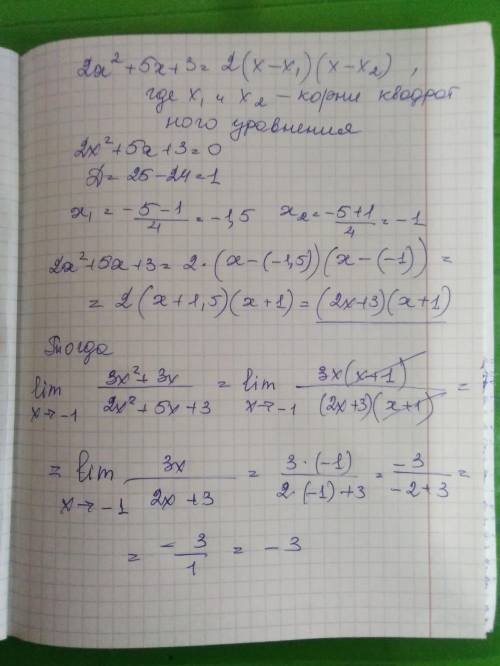 2x² + 5x + 3 = 2(x - x₁)(x - x₂),
где x₁ и x₂ - корни квадрат
ного уравнения
2x² + 5x + 3 = 0
D = 25 - 24 = 1
x₁ = (-5-1)/4 = -1,5 x₂ = (-5+1)/4 = -1
2x² + 5x + 3 = 2·(x - (-1,5))(x - (-1)) =
= 2(x + 1,5)(x + 1) = (2x+3)(x+1)
Тогда
lim x→-1 (3x² + 3x)/(2x² + 5x + 3) = lim x→-1 3x(x+1)/((2x+3)(x+1)) =
= lim x→-1 3x/(2x + 3) = 3·(-1)/(2·(-1)+3) = -3/(-2+3) =
= -3/1 = -3